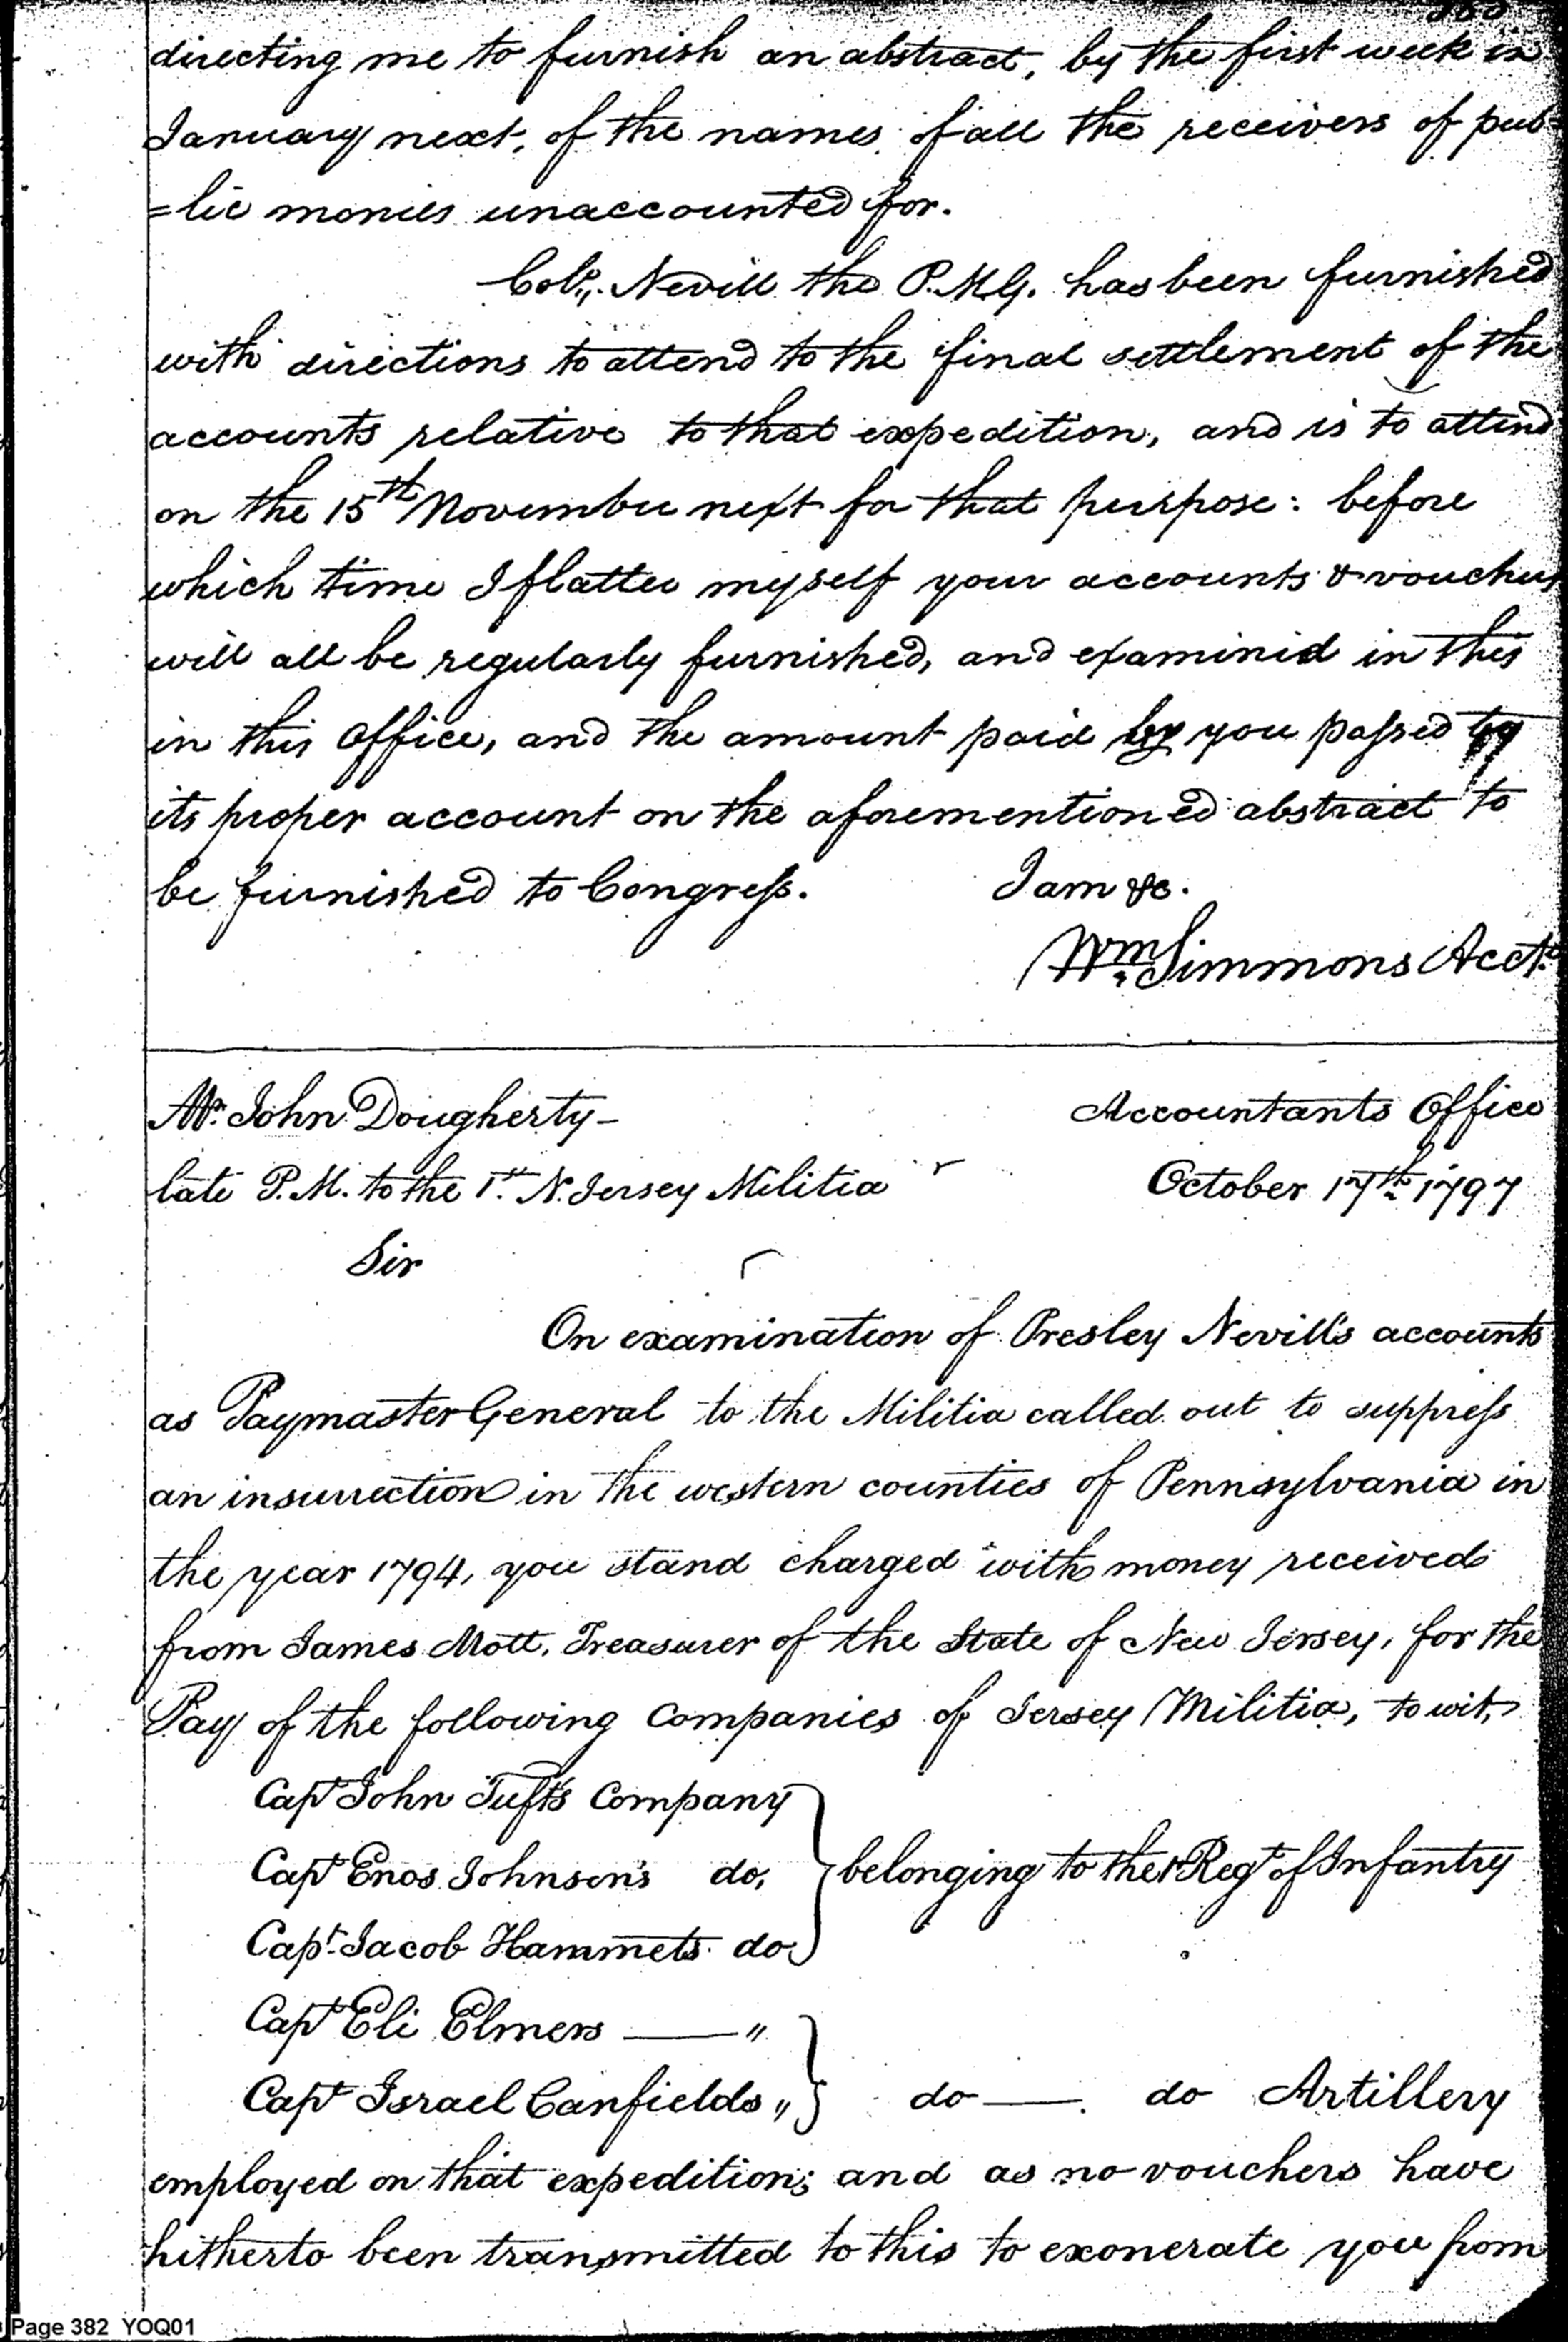 directing me to furnish an abstract, by the first week in
January next, of the names of all the receivers of pub=
=lic monies unaccounted for.
Colo,, Nevill the P.M.G. has been furnished
with directions to attend to the final settlement of the
accounts relative to that expedition, and is to attend
on the 15th November next for that purpose: before
which time I flatter myself your accounts & vouchers
will all be regularly furnished, and examinid in this
in this Office, and the amount paid by you passed to
its proper account on the aforementioned abstract to
be furnished to Congress. I am &c.
Wm Simmons Acct.
Mr. John Dougherty- Accountants Office
late P.M. to the 1st N. Jersey Militia October 17th 1797
Sir
On examination of Presley Nevills accounts
as Paymaster General to the Militia called out to suppress
an insurrection in the western counties of Pennsylvania in
the year 1794, you stand charged with money received
from James Mott, Treasurer of the State of New Jersey, for the
Pay of the following Companies of Jersey Militia, to wit,
Capt John Tuft's Company
Capt Enos Johnson's do, belonging to the 1 Regt of Infantry
Capt. Jacob Hammets do
Capt Eli Elmers — "
Capt Israel Canfields " do —. do Artillery
employed on that expedition; and as no vouchers have
hitherto been transmitted to this to exonerate you from
Page 382 YOQ01